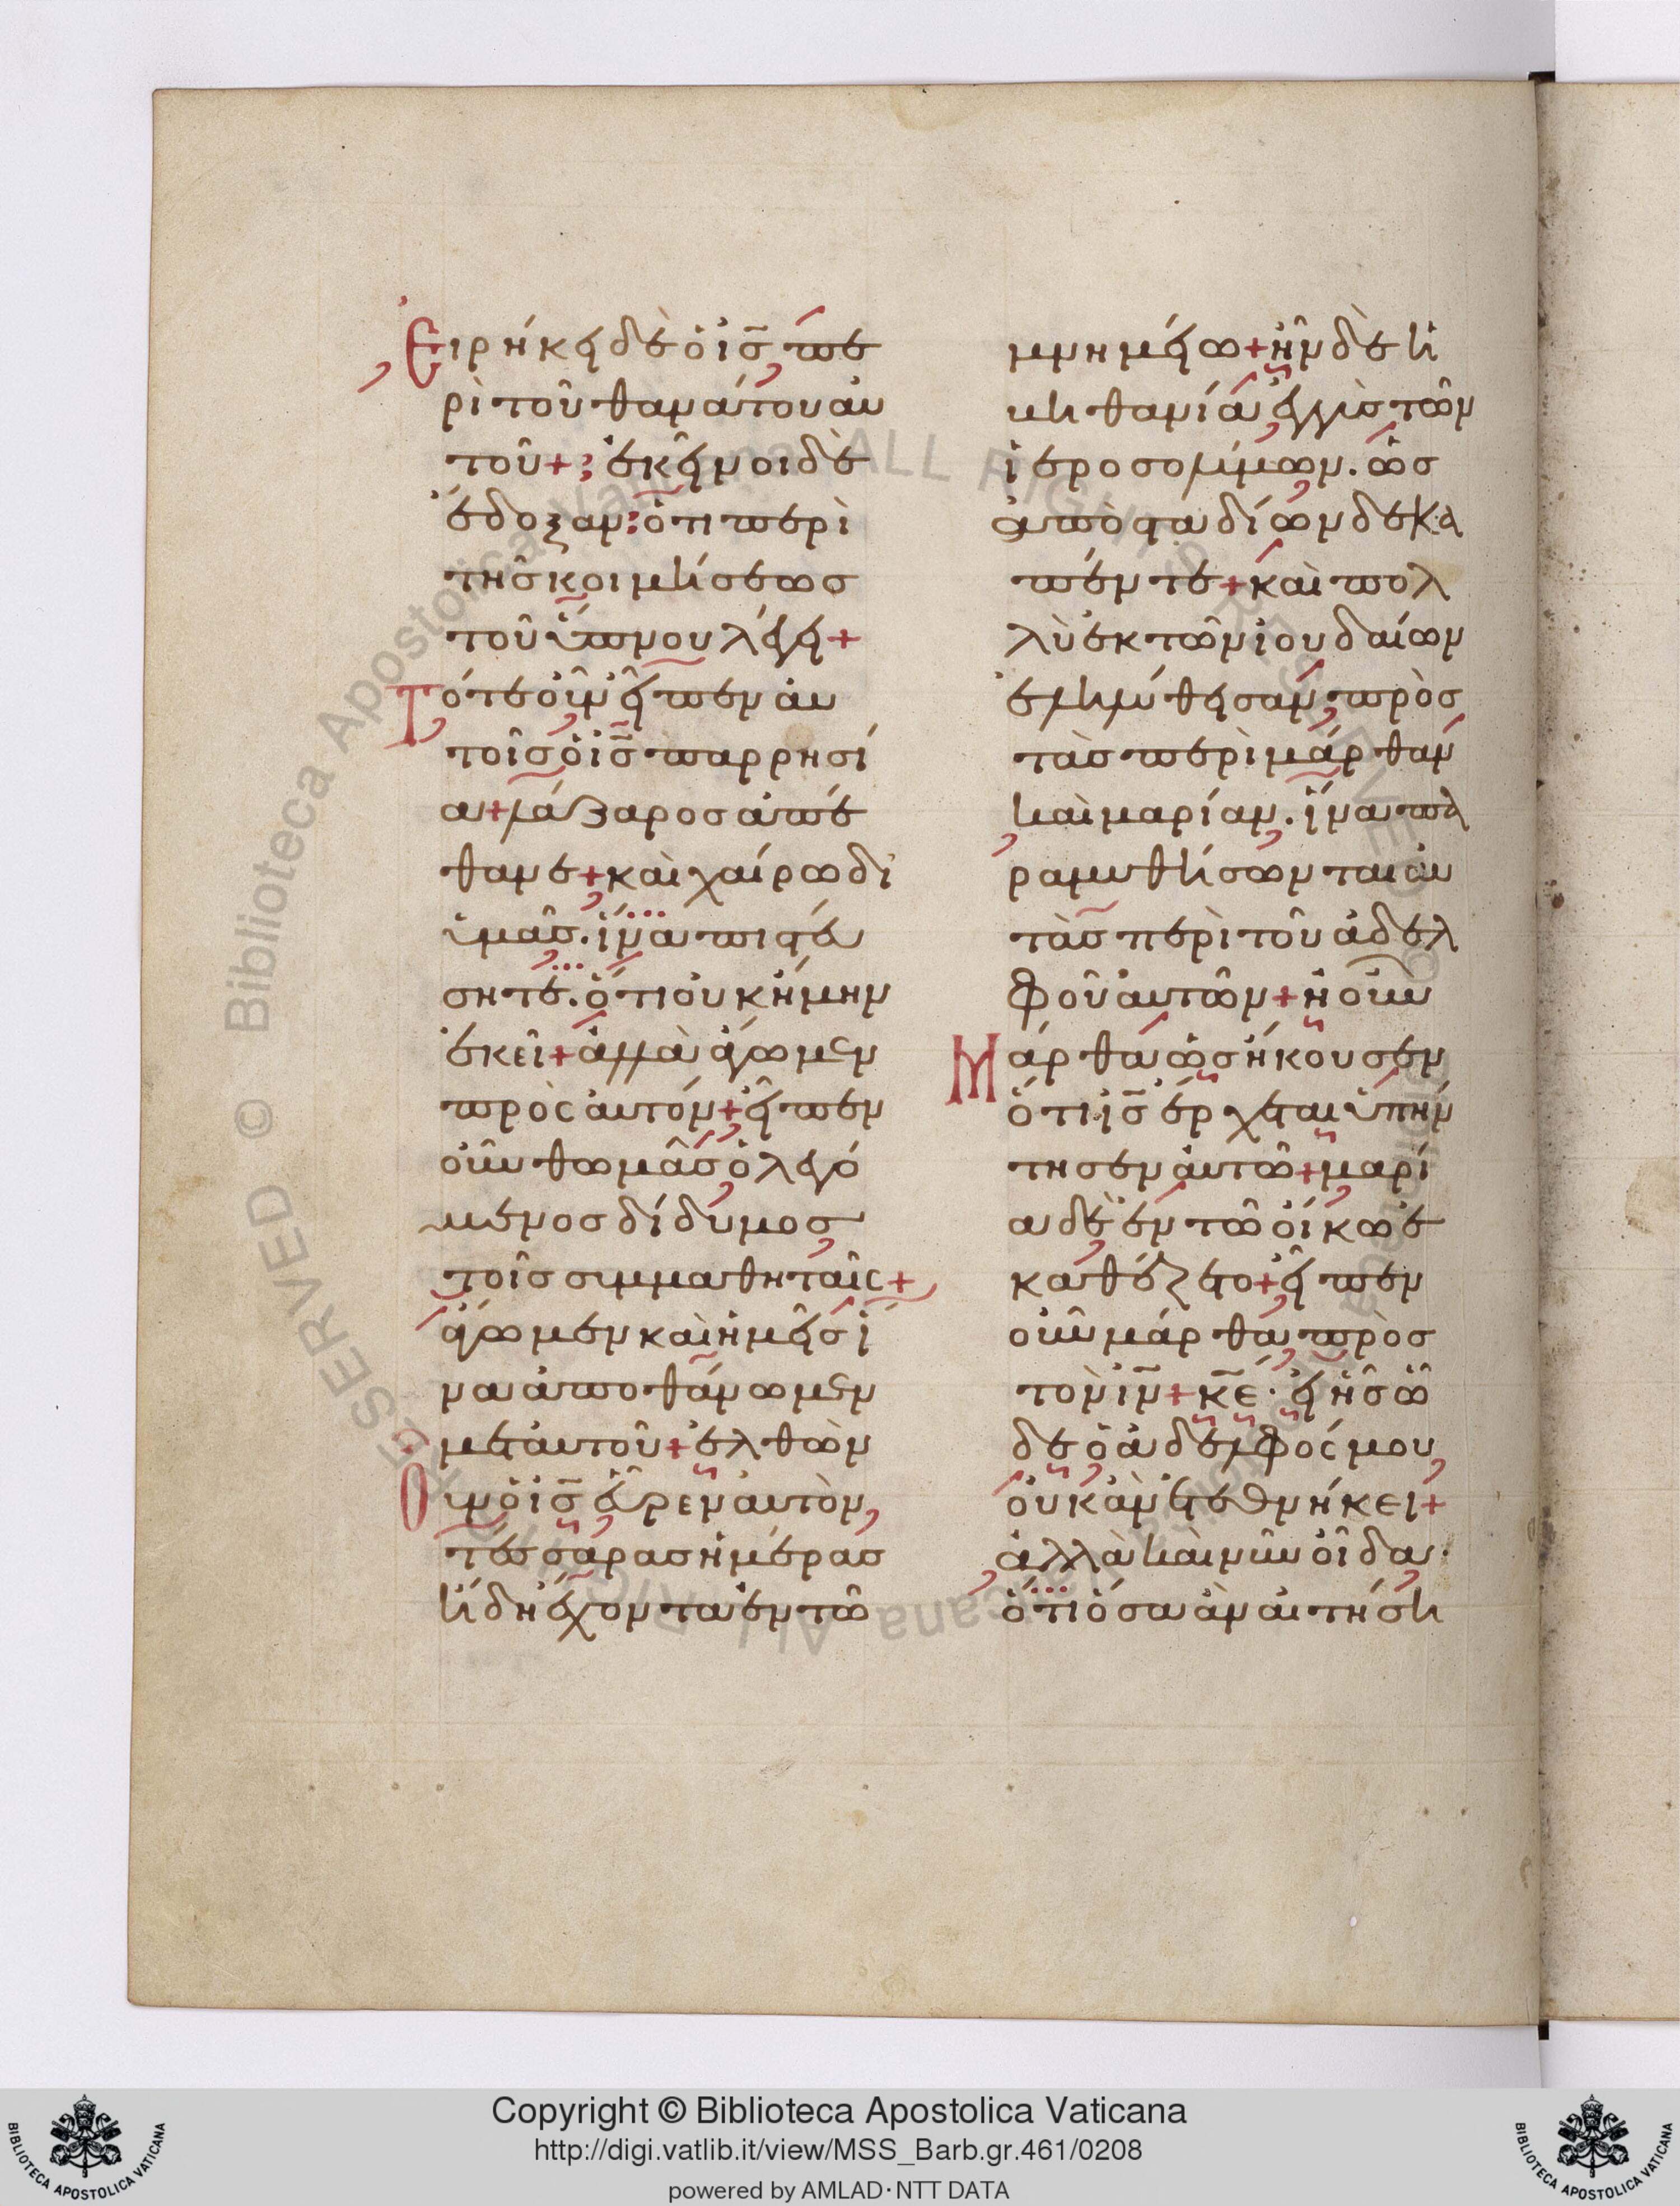 Ειρήκει δὲ ὁ ις̅ πε
ρὶ τοῦ θανάτου αυ
τοῦ + ἐκεῖνοι δὲ
ἔδοξαν: ὅτι περὶ
τῆς κοιμήσεως
τοῦ ὕπνου λέγει +
Τότε οὖν εἶπεν αυ
τοῖς ὁ ις̅ παρρησί
α + λάζαρος ἀπέ
θανε + καὶ χαίρω δι
ὑμᾶς. ἵνα πιστεύ
σητε. ὅτι οὐκ ἤμην
ἐκεῖ + ἀλλὰ ἄγωμεν
πρὸς αυτόν + εἶπεν
οὖν θωμᾶς ὁ λεγό
μενος δίδυμος
τοῖς συμμαθηταῖς +
ἄγωμεν καὶ ἡμεῖς ἵ
να ἀποθάνωμεν
μετ αυτοῦ + ἐλθὼν
Οὖν ὁ ις̅ εὗρεν αυτὸν,
τέσσαρας ἡμέρας
ἤδη ἔχοντα ἐν τῶ
μνημείω + ἦν δὲ ἡ
βηθανία ἐγγὺς τῶν
ἱεροσολύμων. ὡς
ἀπὸ σταδίων δεκα
πέντε + καὶ πολ
λοὶ ἐκ τῶν ἰουδαίων
ἐληλύθεισαν πρὸς
τὰς περὶ μάρθαν
καὶ μαρίαν. ἵνα πα
ραμυθήσωνται αυ
τὰς περὶ τοῦ ἀδελ
φοῦ αυτῶν + ἡ οὖν
Μάρθα ὡς ἤκουσεν
ὅτι ις̅ ἔρχεται ὑπήν
τησεν αυτῶ + μαρί
α δὲ ἐν τῶ οἴκω ἐ
καθέζετο + εἶπεν
οὖν μάρθα πρὸς
τὸν ιν̅ + κε̅· εἰ ἦς ὧ
δε ὁ ἀδελφός μου,
οὐκ ἂν ἐτεθνήκει +
ἀλλὰ καὶ νῦν οἶδα·
ὅτι ὅσα ἂν αἰτήση
Copyright © Biblioteca Apostolica Vaticana
http://digi.vatlib.it/view/MSS_Barb.gr.461/0208
powered by AMLAD·NTT DATA